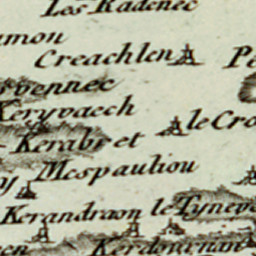 Los Radenec
amon
Creachlen
Pe
rvennec
Keryvaech
le Cro
Kerabret
Mespauliou
Kerandraon le Tyneve
Kerdournan